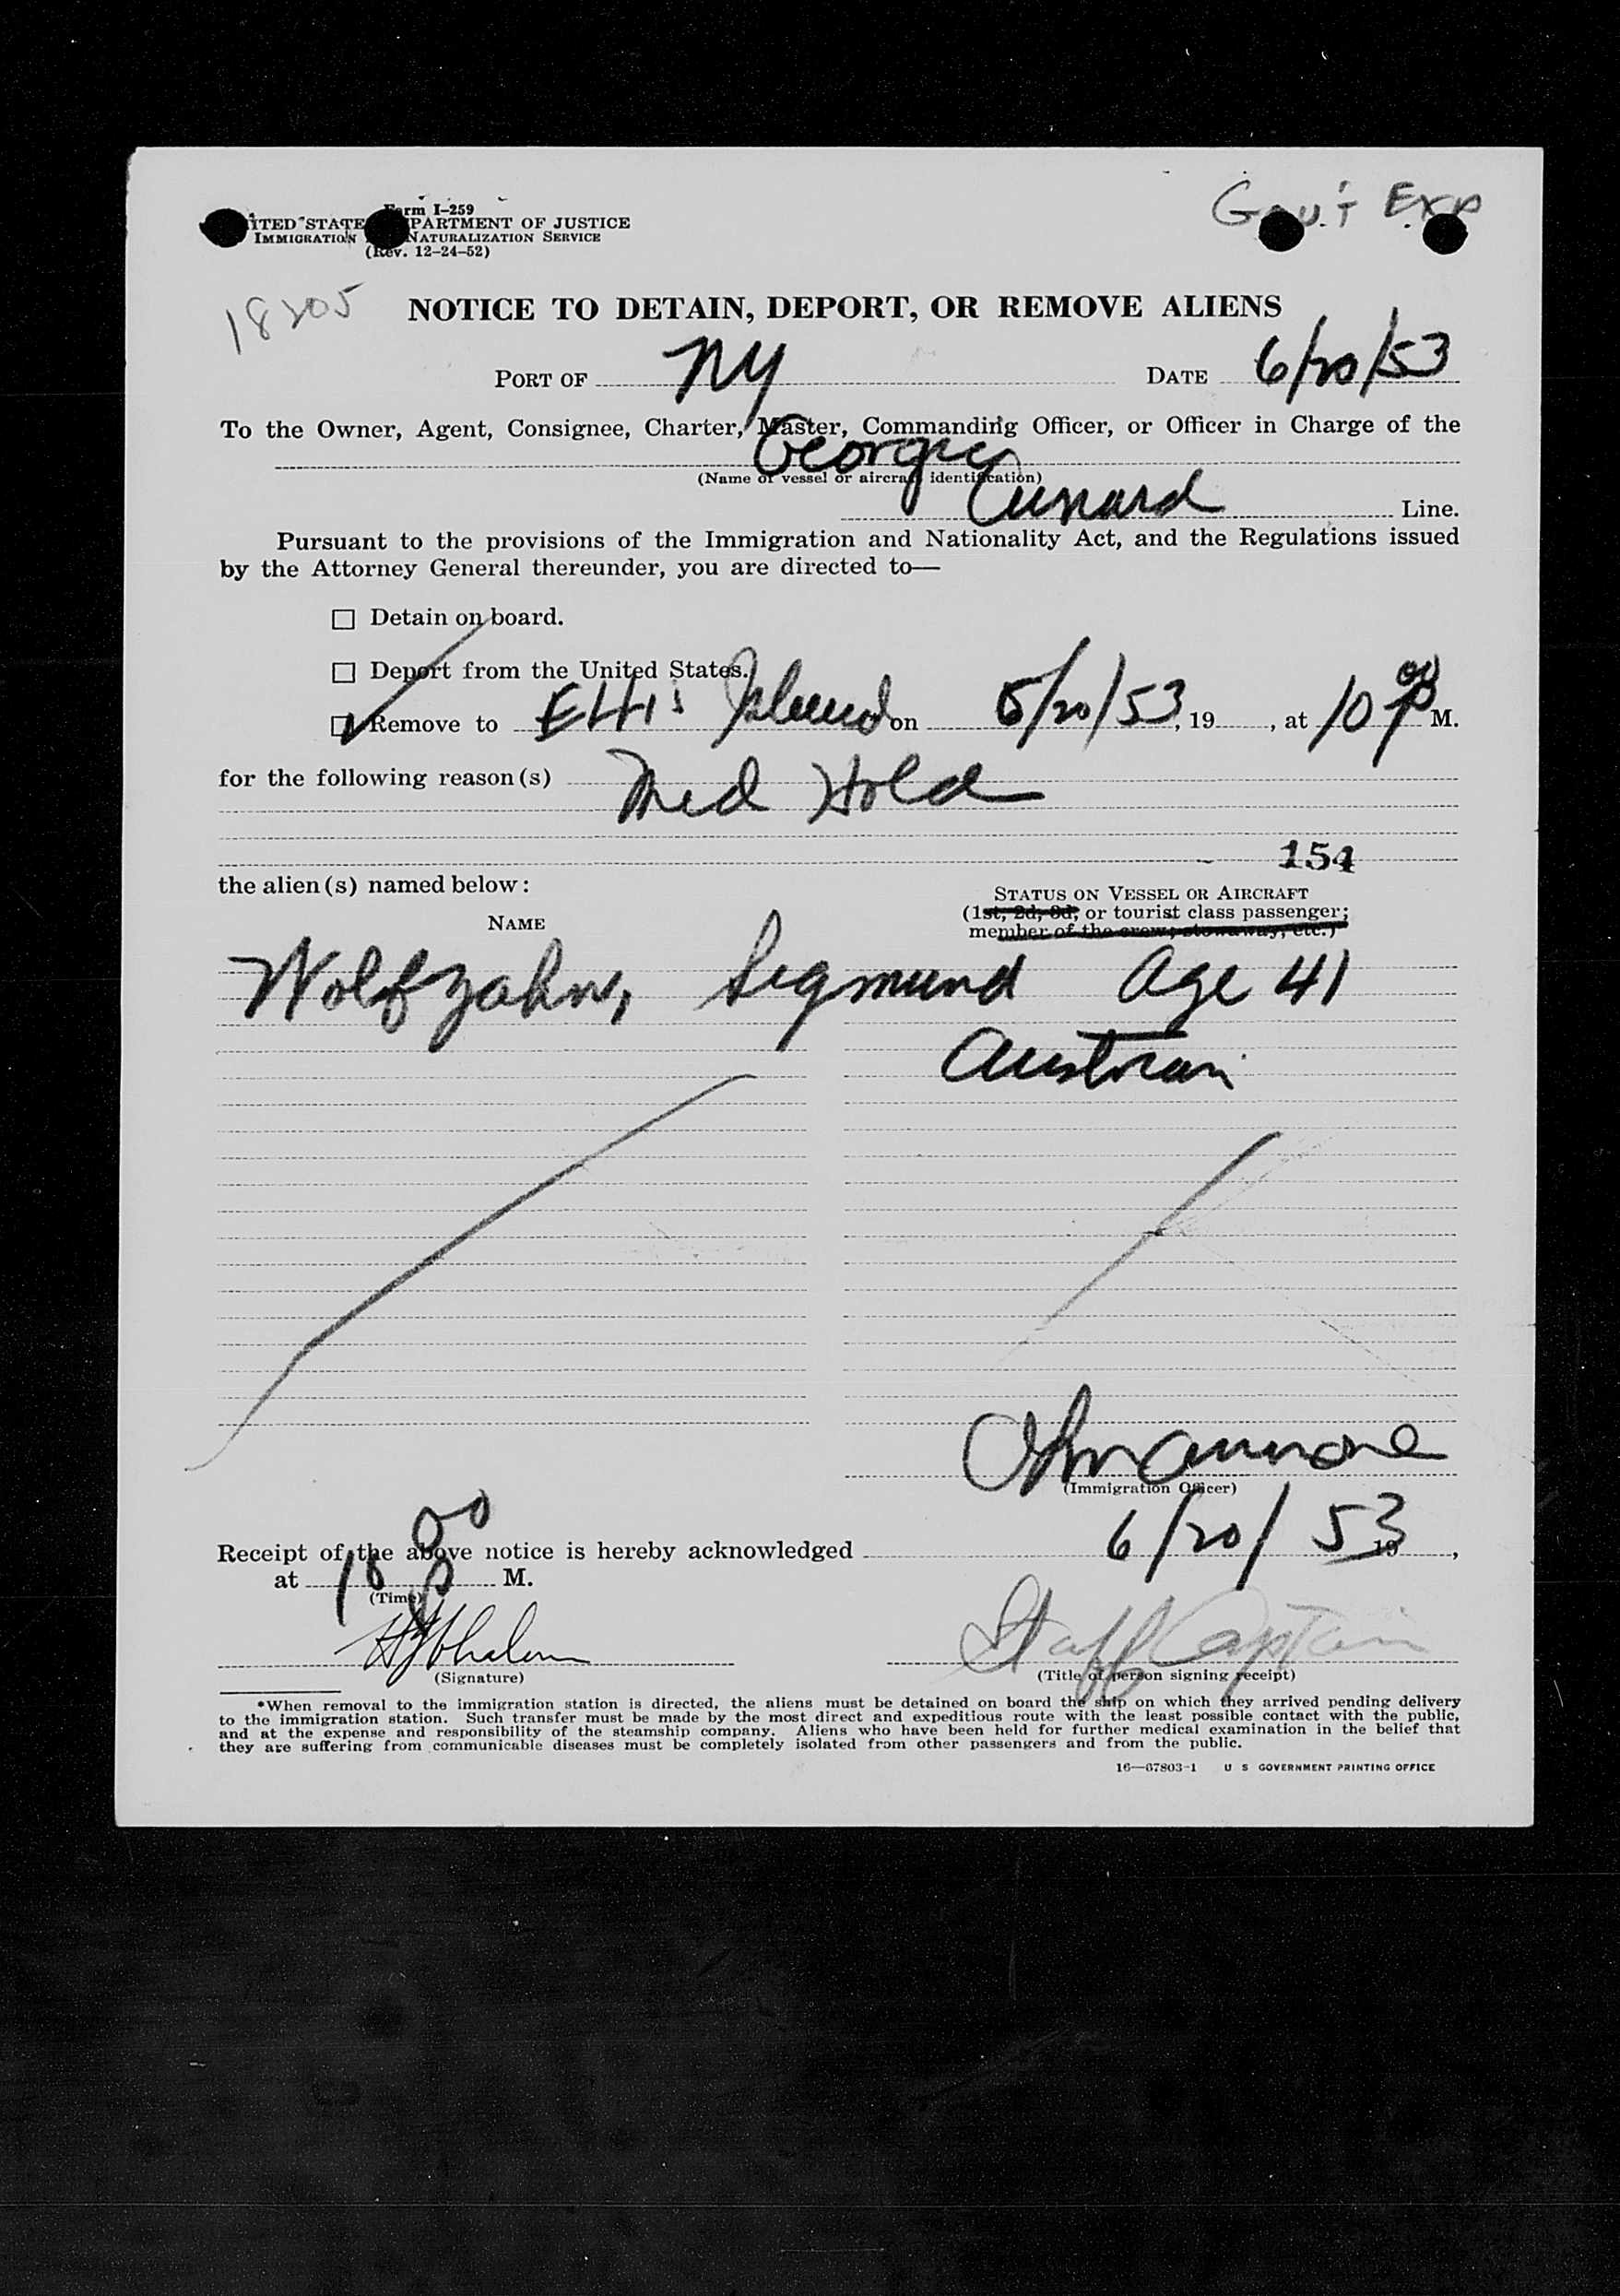 Form I-259
UNITED STATES DEPARTMENT OF JUSTICE
IMMIGRATION NATURALIZATION SERVICE
(Rev. 12-24-52)
Gov't Exp
18205
NOTICE TO DETAIN, DEPORT, OR REMOVE ALIENS
PORT OF NY DATE 6/20/53
To the Owner, Agent, Consignee, Charter, Master, Commanding Officer, or Officer in Charge of the
Georgic
(Name of vessel or aircraft identification)
Cunard Line.
Pursuant to the provisions of the Immigration and Nationality Act, and the Regulations issued
by the Attorney General thereunder, you are directed to—
☐ Detain on board.
☐ Deport from the United States.
☑ Remove to Ellis Island on 6/20/53, 19 , at 10 00 P M.
for the following reason(s) Med Hold
154
the alien(s) named below:
STATUS ON VESSEL OR AIRCRAFT
NAME
(1st, 2d, 3d, or tourist class passenger;
member of the crew; stowaway, etc.)
Wolfzahn, Sigmund Age 41
Austrian
(Immigration Officer)
Receipt of the above notice is hereby acknowledged 6/20/53 19 ,
at 10 00 P M.
(Time)
Staff Captain
(Signature) (Title of person signing receipt)
*When removal to the immigration station is directed, the aliens must be detained on board the ship on which they arrived pending delivery
to the immigration station. Such transfer must be made by the most direct and expeditious route with the least possible contact with the public,
and at the expense and responsibility of the steamship company. Aliens who have been held for further medical examination in the belief that
they are suffering from communicable diseases must be completely isolated from other passengers and from the public.
16—67803-1 U S GOVERNMENT PRINTING OFFICE